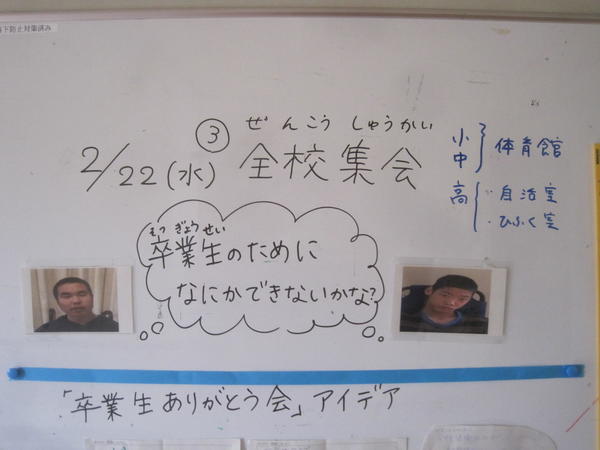 下防止対策済み
③
ぜんこうしゅうかい
2/22(水) 全校集会
小
中
体育館
高
・自活室
・ひふく室
そつぎょうせい
卒業生のために
なにかできないかな?
「卒業生ありがとう会」アイデア